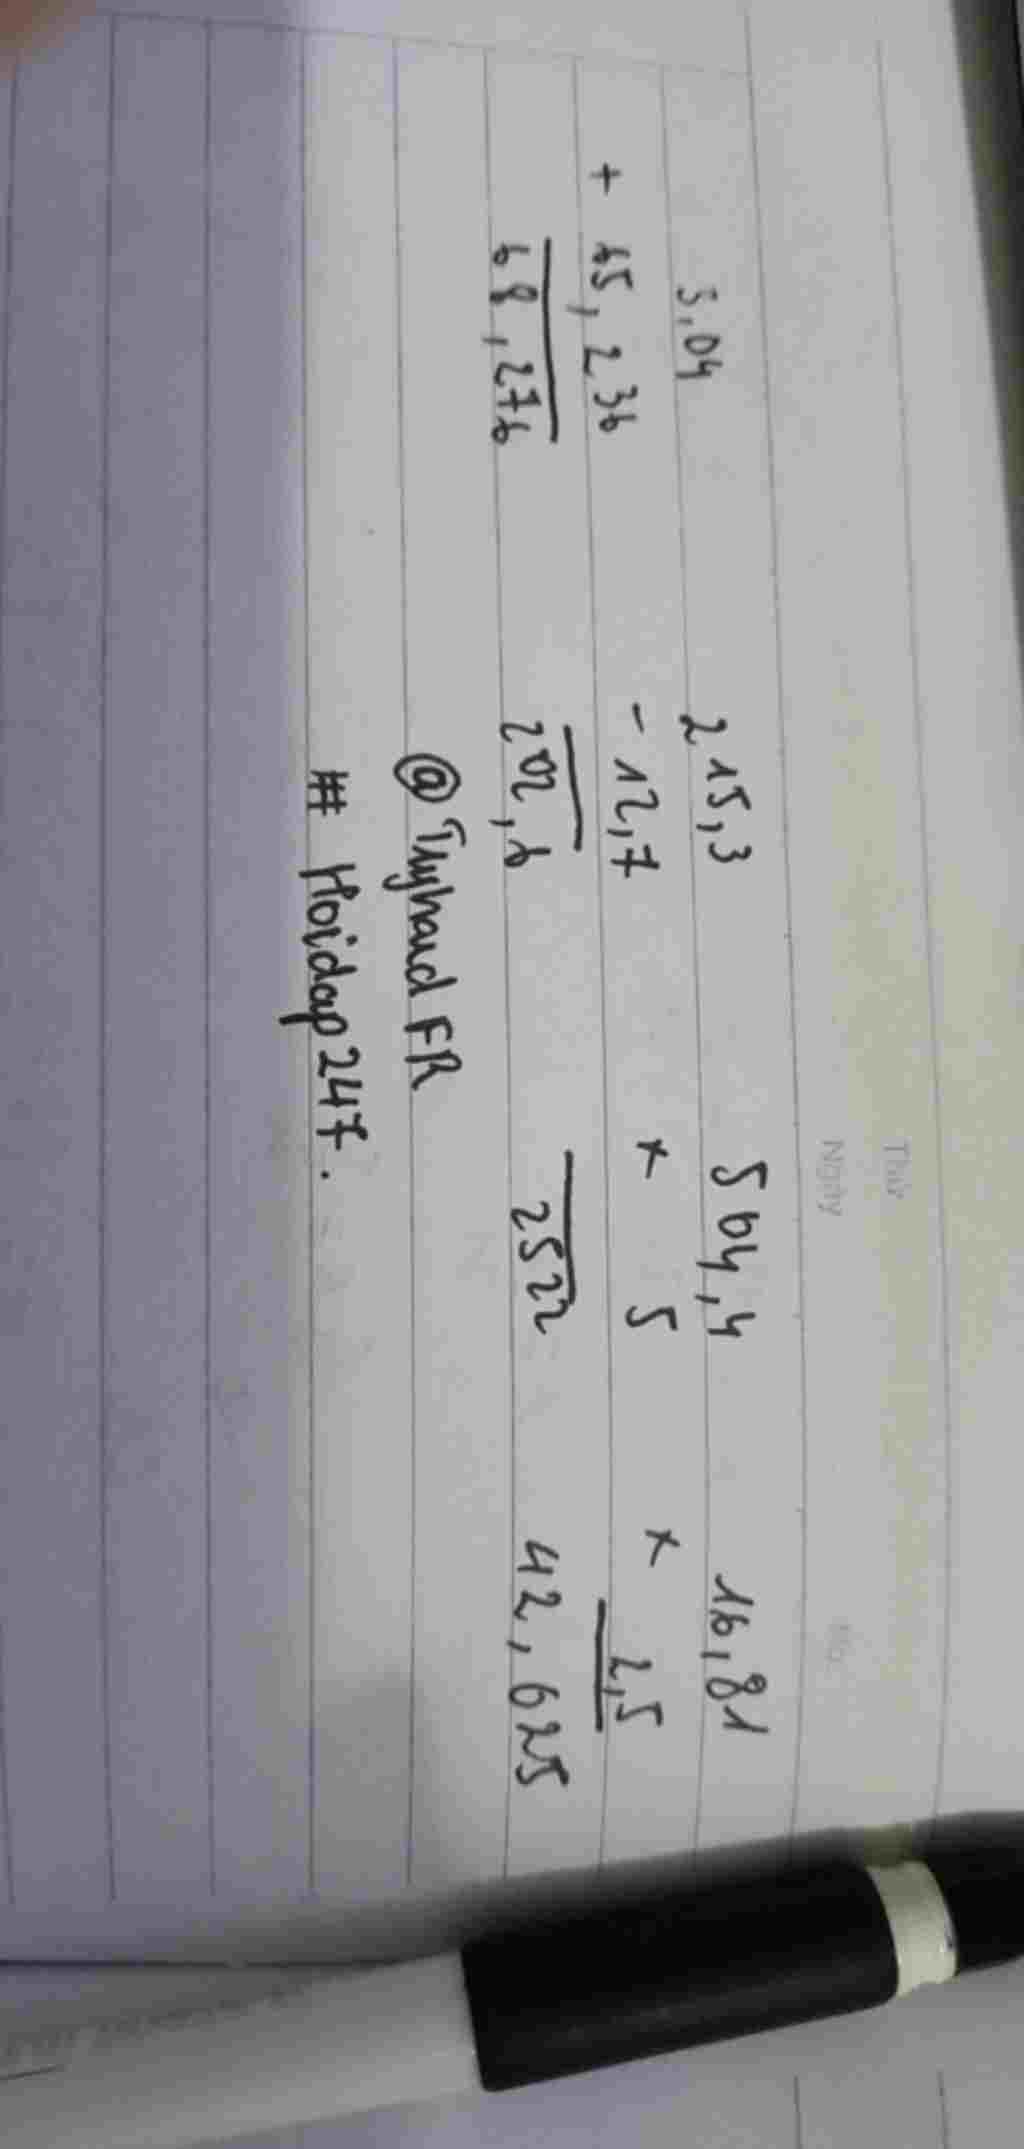 Thứ
Ngày
No.
3,04 215,3 504,4 16,81
+ 65,236 - 12,7 × 5 × 2,5
68,276 202,6 2522 42,025
@TryhardFR
# Hoidap247.